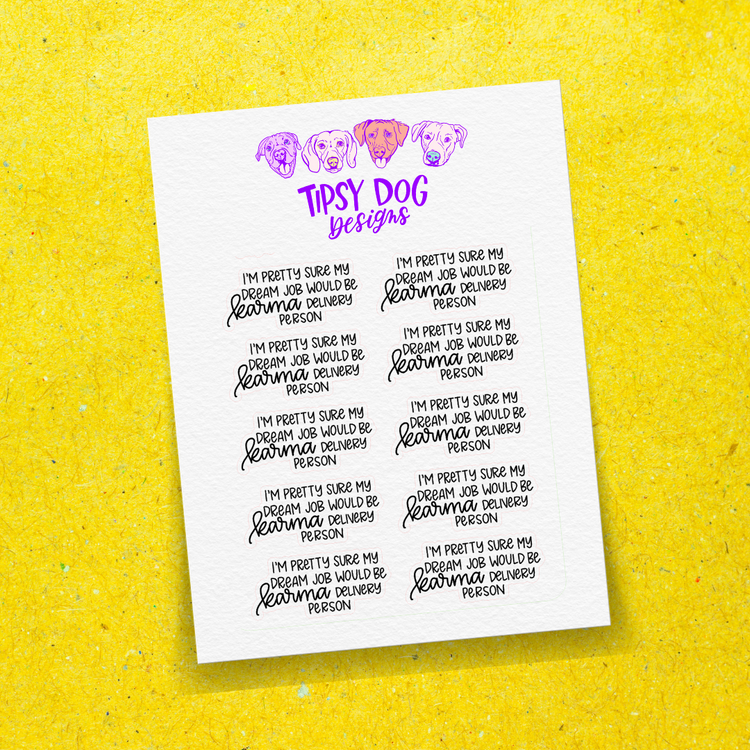 TIPSY DOG
Designs
I'M PRETTY SURE MY
DREAM JOB WOULD BE
karma DELIVERY
PERSON
I'M PRETTY SURE MY
DREAM JOB WOULD BE
karma DELIVERY
PERSON
I'M PRETTY SURE MY
DREAM JOB WOULD BE
karma DELIVERY
PERSON
I'M PRETTY SURE MY
DREAM JOB WOULD BE
karma DELIVERY
PERSON
I'M PRETTY SURE MY
DREAM JOB WOULD BE
karma DELIVERY
PERSON
I'M PRETTY SURE MY
DREAM JOB WOULD BE
karma DELIVERY
PERSON
I'M PRETTY SURE MY
DREAM JOB WOULD BE
karma DELIVERY
PERSON
I'M PRETTY SURE MY
DREAM JOB WOULD BE
karma DELIVERY
PERSON
I'M PRETTY SURE MY
DREAM JOB WOULD BE
karma DELIVERY
PERSON
I'M PRETTY SURE MY
DREAM JOB WOULD BE
karma DELIVERY
PERSON